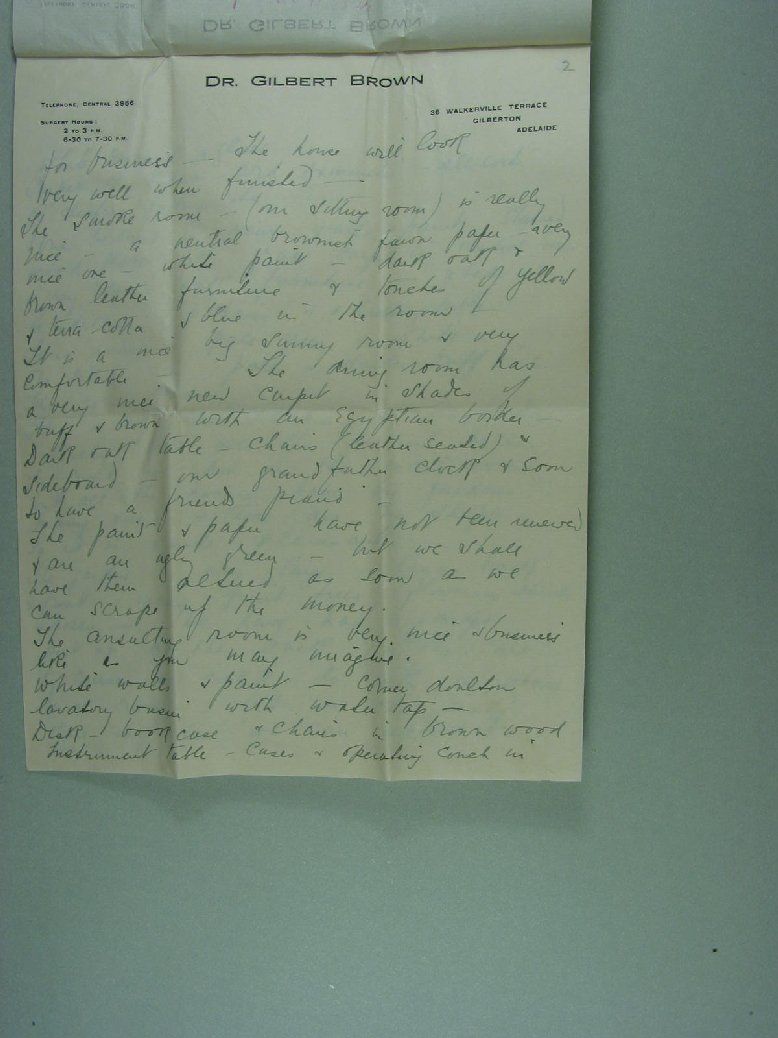 2
DR. GILBERT BROWN
TELEPHONE, CENTRAL 3966
SURGERY HOURS:
2 TO 3 P.M.
6-30 TO 7-30 P.M.
36 WALKERVILLE TERRACE
GILBERTON
ADELAIDE
for business — The house will look
very well when finished —
The smoke room — (our sitting room) is really
nice — a neutral brownish fawn paper — a very
nice one — white paint — dark oak &
brown leather furniture & touches of yellow
& terra-cotta & blue in the room —
It is a nice big sunny room & very
comfortable — The dining room has
a very nice new carpet in shades of
buff & brown with an Egyptian border —
Dark oak table — chairs (leather seated) &
sideboard — our grandfather clock & soon
to have a friends piano —
The paint & paper have not been renewed
& are an ugly green — but we shall
have them as soon as we
can scrape up the money.
The consulting room is very nice & business
like as you may imagine.
White walls & paint — corner doulton
lavatory basin with water taps —
Desk — book case & chairs in brown wood
Instrument table — cases & operating couch in